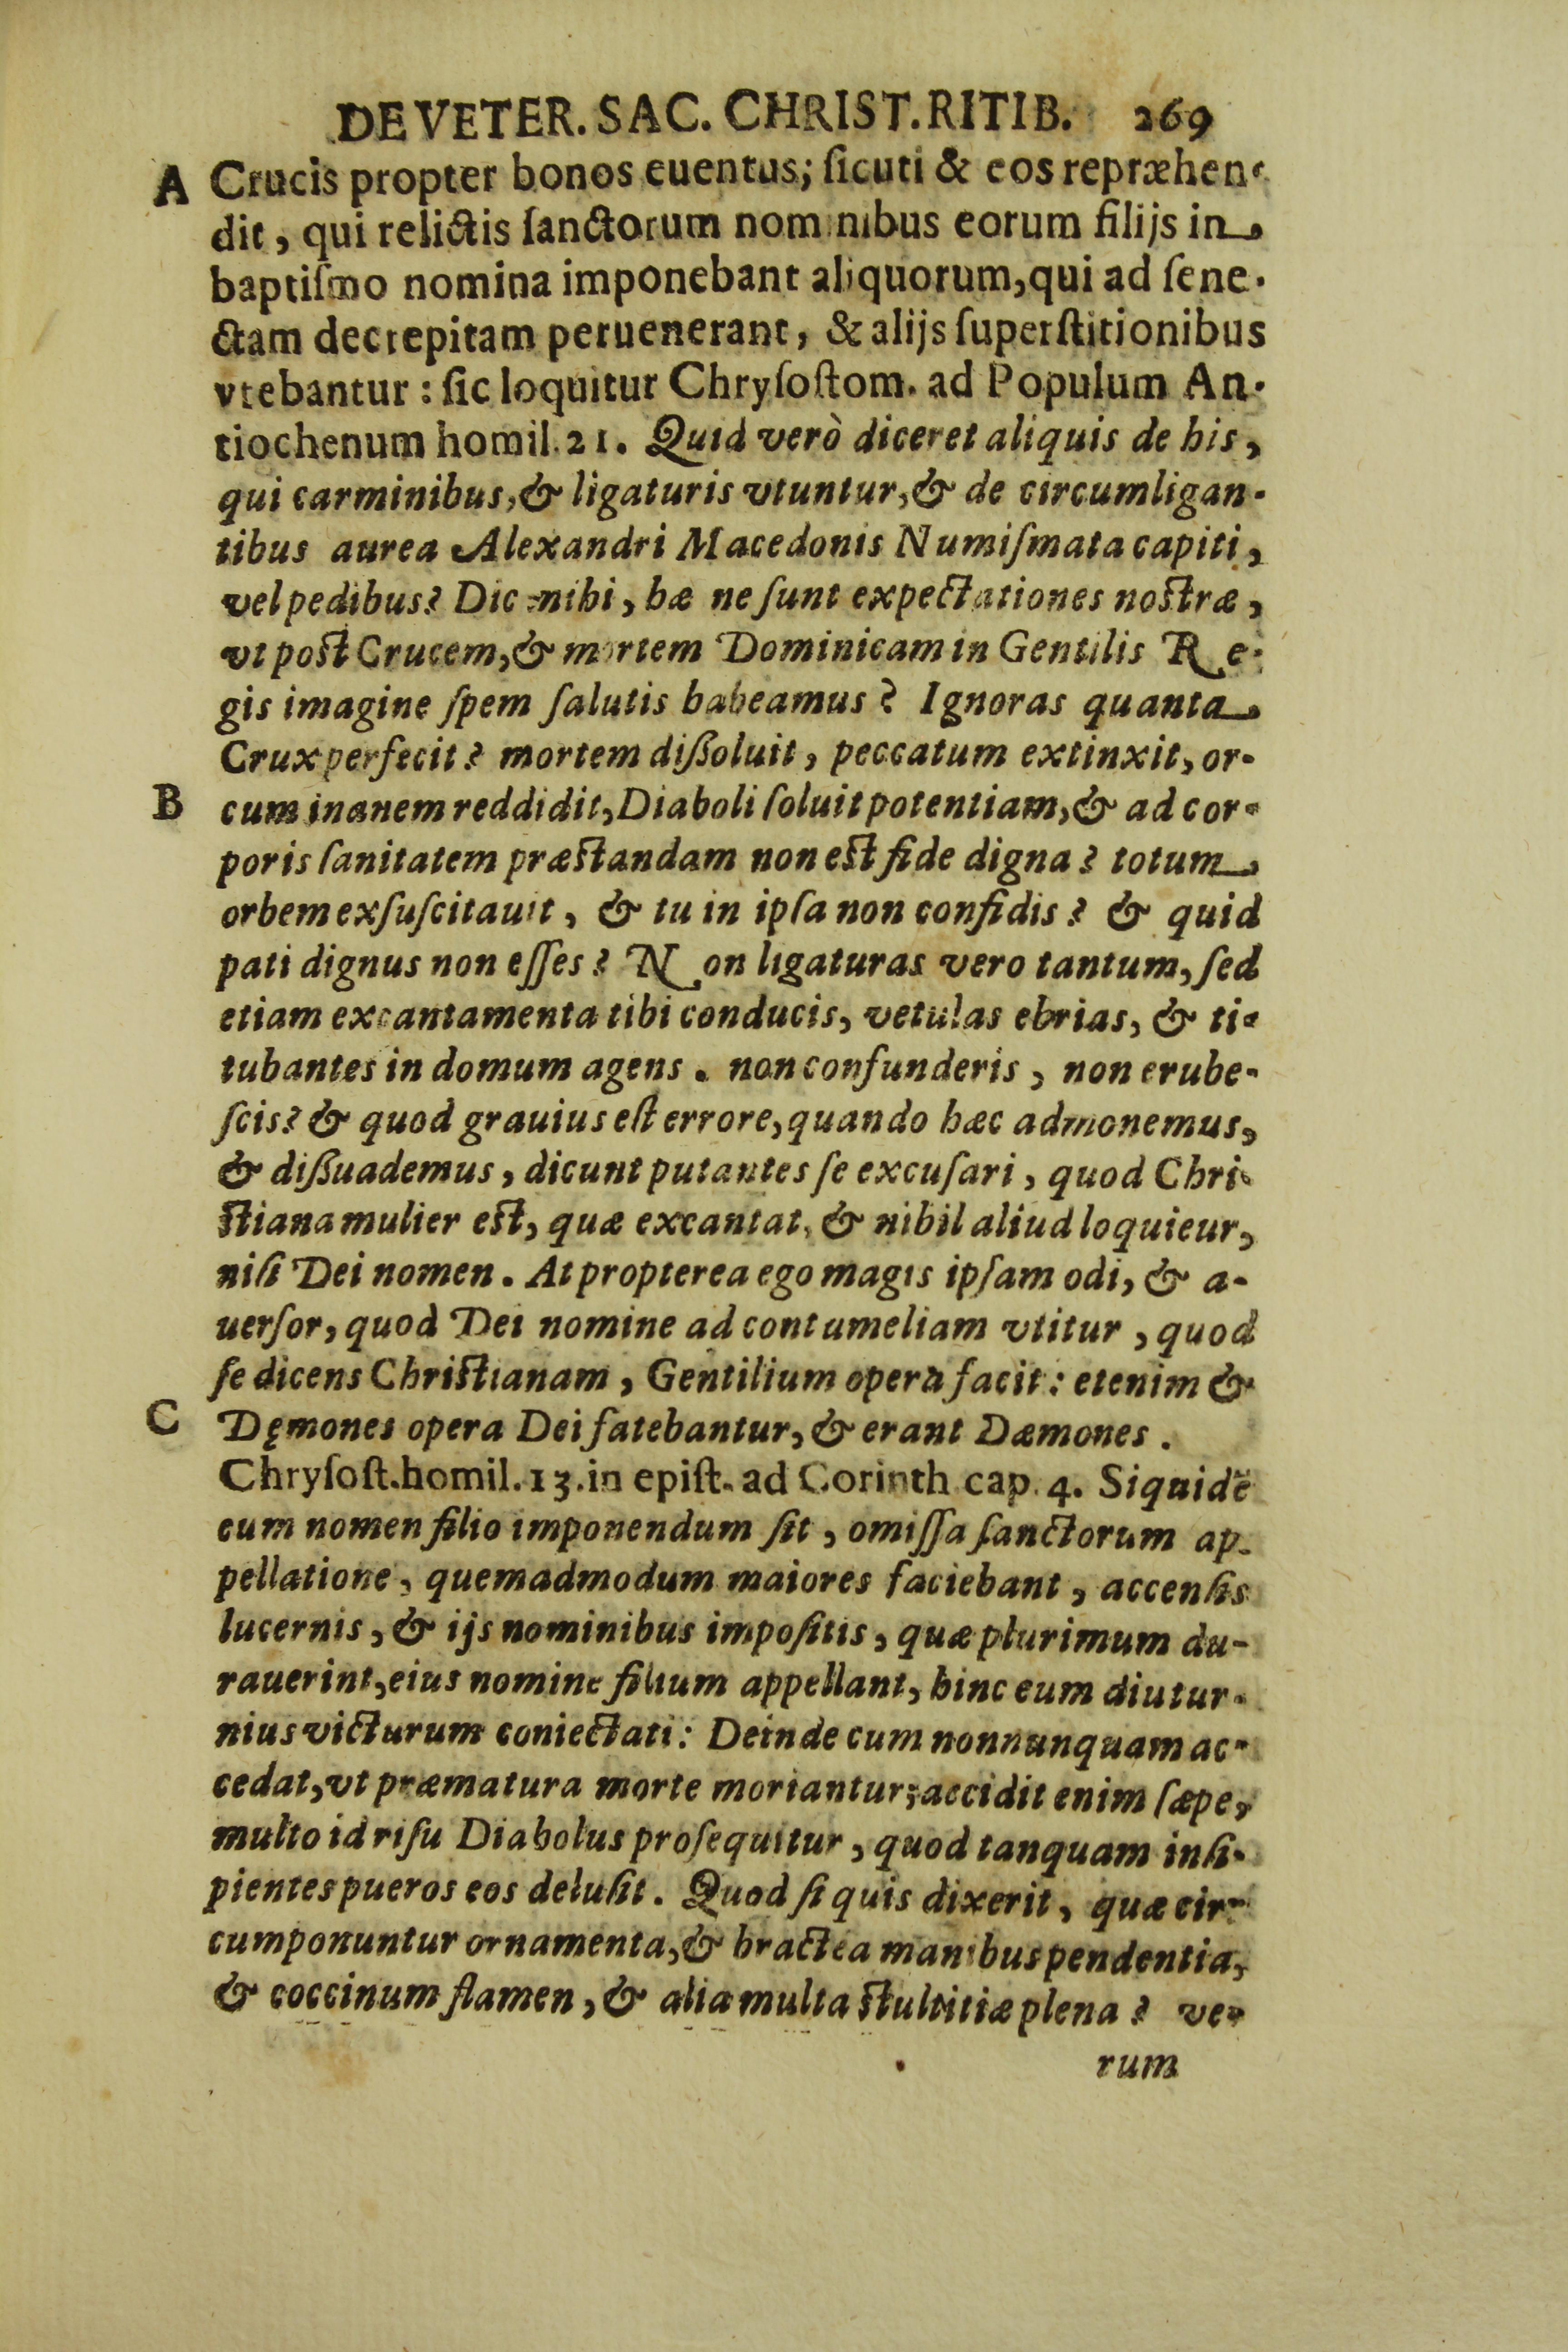 DE VETER. SAC. CHRIST. RITIB. 269
A Crucis propter bonos euentus; ſicuti & eos repræhen-
dit, qui relictis ſanctorum nominibus eorum filijs in
baptiſmo nomina imponebant aliquorum, qui ad ſene-
ctam decrepitam peruenerant, & alijs ſuperſtitionibus
vtebantur: ſic loquitur Chryſoſtom. ad Populum An-
tiochenum homil. 21. Quid verò diceret aliquis de his,
qui carminibus, & ligaturis vtuntur, & de circumligan-
tibus aurea Alexandri Macedonis Numiſmata capiti,
vel pedibus? Dic mihi, hæ ne ſunt expectationes noſtræ,
vt poſt Crucem, & mortem Dominicam in Gentilis Re-
gis imagine ſpem ſalutis habeamus? Ignoras quanta
Crux perfecit? mortem dißoluit, peccatum extinxit, or-
B cum inanem reddidit, Diaboli ſoluit potentiam, & ad cor-
poris ſanitatem præſtandam non eſt fide digna? totum
orbem exſuſcitauit, & tu in ipſa non confidis? & quid
pati dignus non eſſes? Non ligaturas vero tantum, ſed
etiam excantamenta tibi conducis, vetulas ebrias, & ti-
tubantes in domum agens. non confunderis, non erube-
ſcis? & quod grauius eſt errore, quando hæc admonemus,
& dißuademus, dicunt putantes ſe excuſari, quod Chri-
ſtiana mulier eſt, quæ excantat, & nihil aliud loquieur,
niſi Dei nomen. At propterea ego magis ipſam odi, & a-
uerſor, quod Dei nomine ad contumeliam vtitur, quod
ſe dicens Chriſtianam, Gentilium opera facit: etenim &
C Dęmones opera Dei fatebantur, & erant Dæmones.
Chryſoſt. homil. 13. in epiſt. ad Corinth cap. 4. Siquidẽ
cum nomen filio imponendum ſit, omiſſa ſanctorum ap-
pellatione, quemadmodum maiores faciebant, accenſis
lucernis, & ijs nominibus impoſitis, quæ plurimum du-
rauerint, eius nomine filium appellant, hinc eum diutur-
nius victurum coniectati: Deinde cum nonnunquam ac-
cedat, vt præmatura morte moriantur; accidit enim ſæpe,
multo id riſu Diabolus proſequitur, quod tanquam inſi-
pientes pueros eos deluſit. Quod ſi quis dixerit, quæ cir-
cumponuntur ornamenta, & bractea manibus pendentia,
& coccinum ſtamen, & alia multa ſtultitiæ plena? ve-
rum